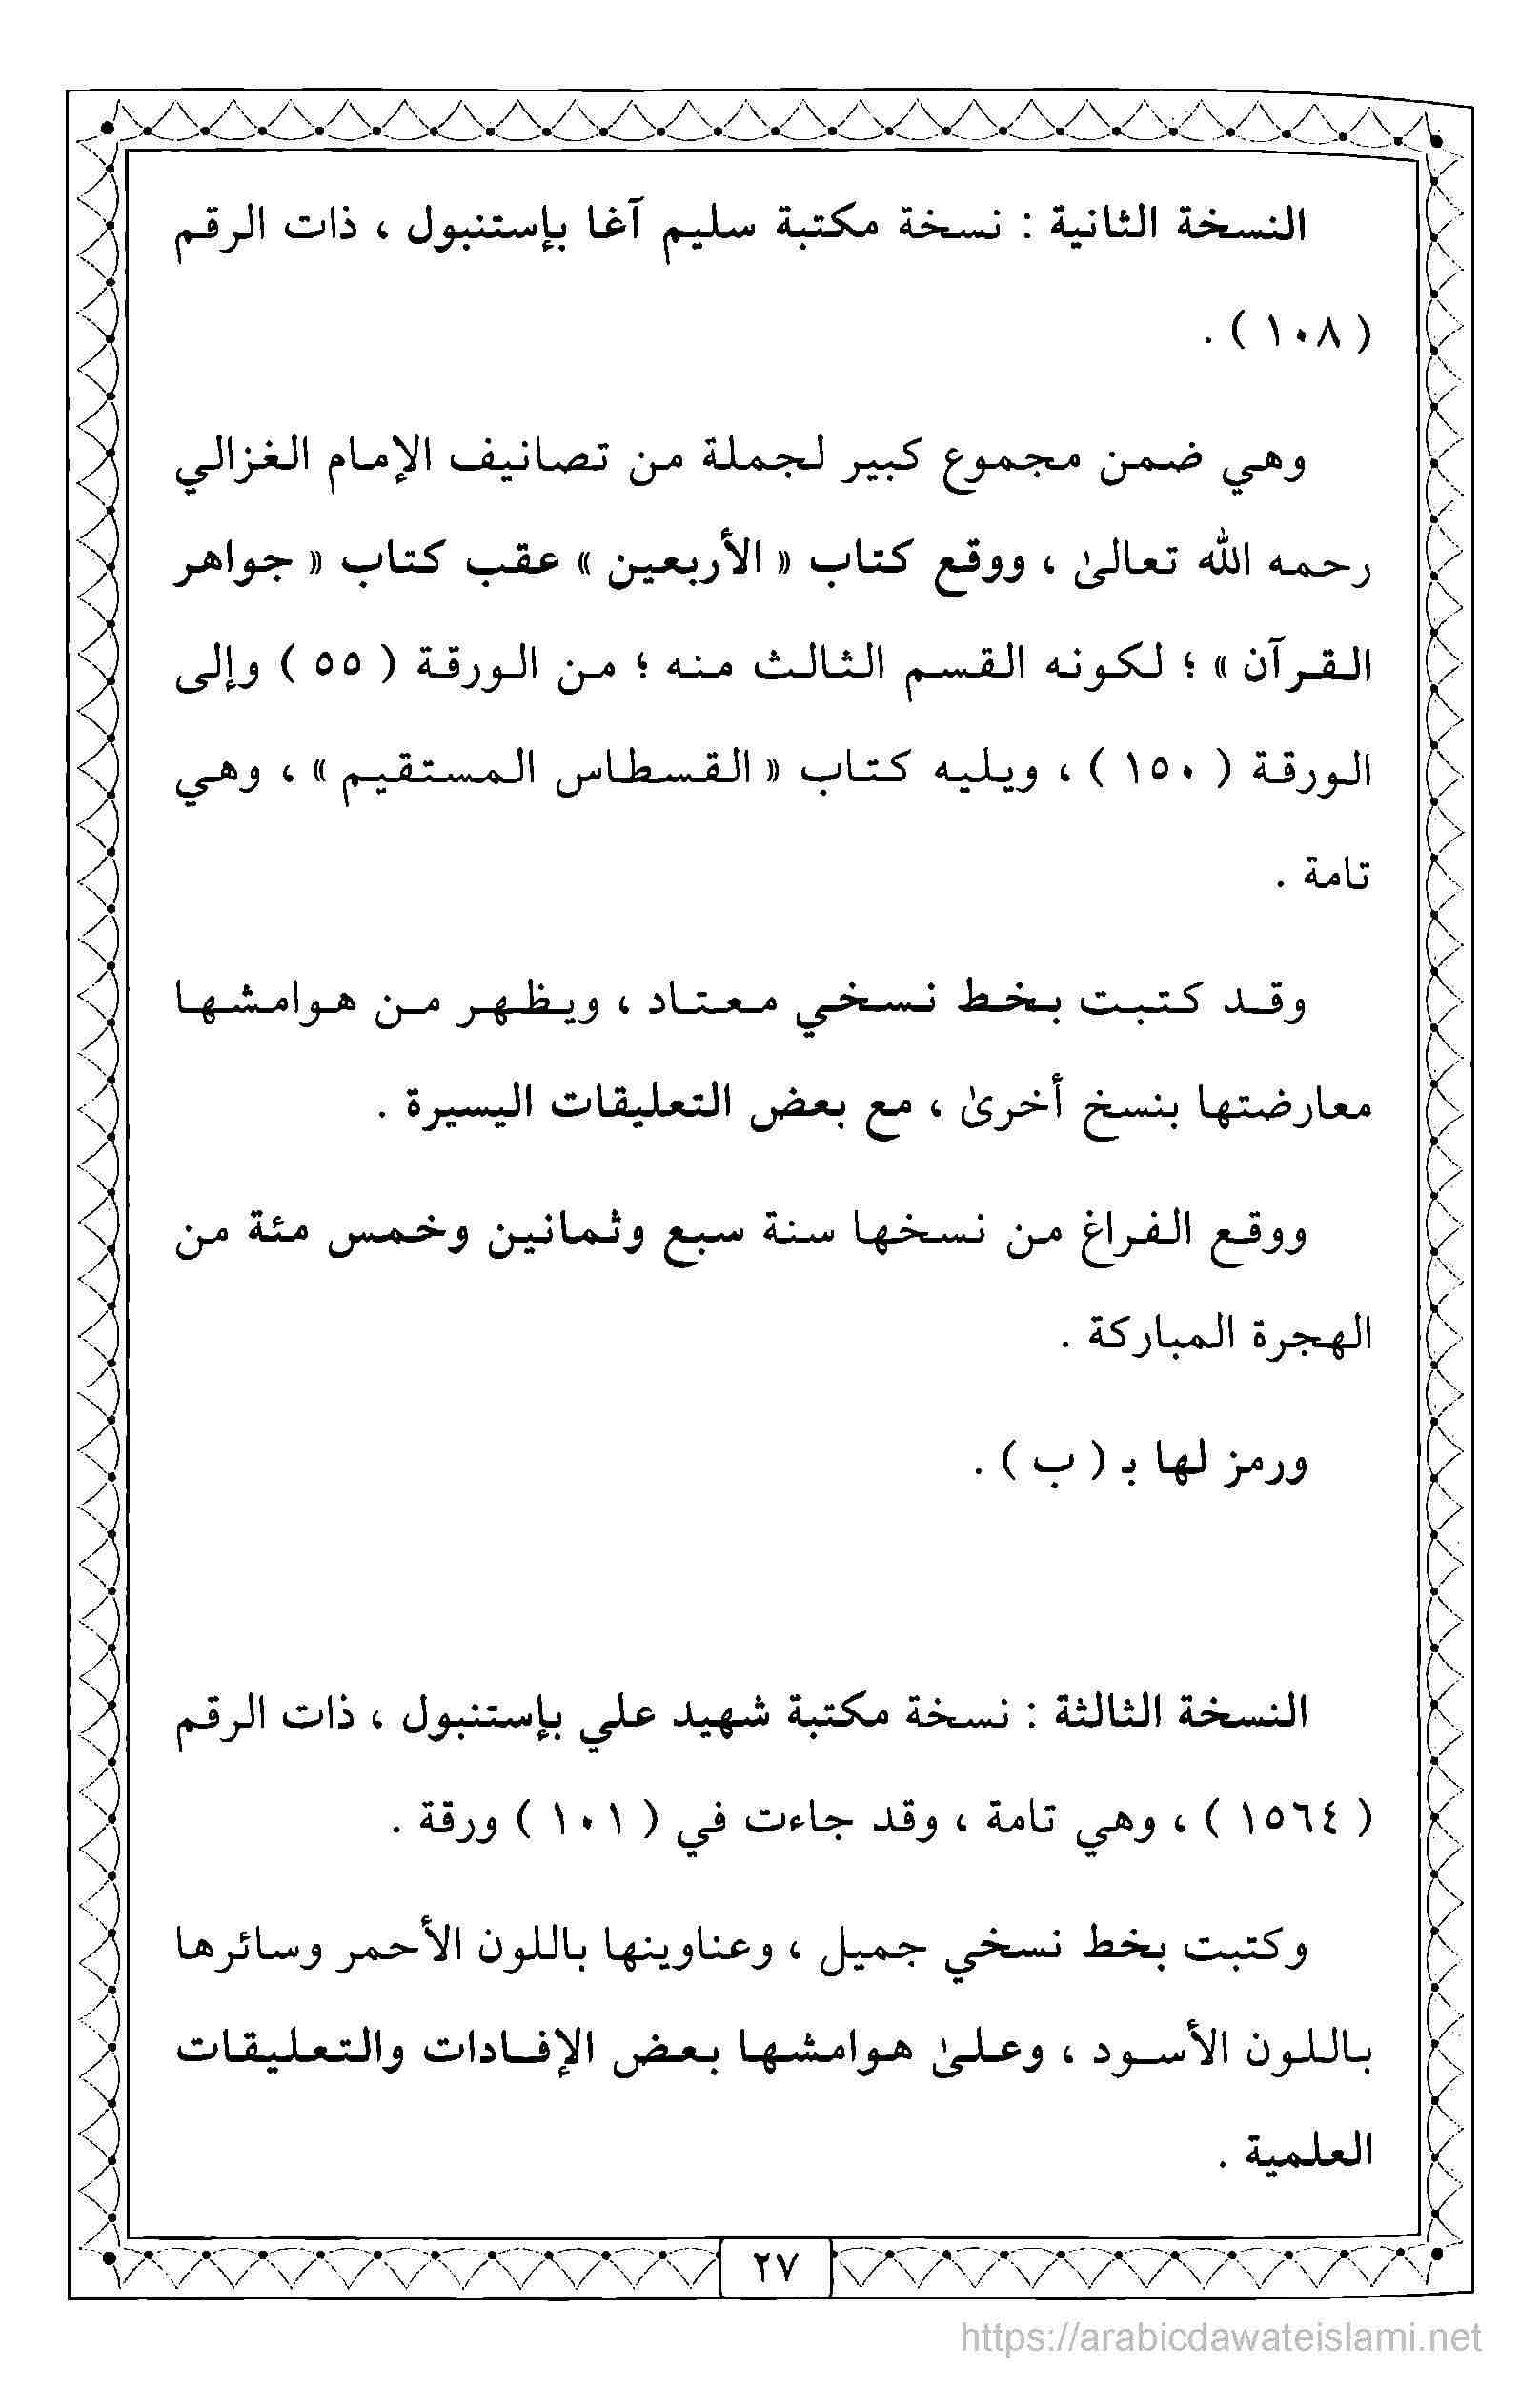 النسخة الثانية : نسخة مكتبة سليم آغا بإستنبول ، ذات الرقم
( ١٠٨ ) .
وهي ضمن مجموع كبير لجملة من تصانيف الإمام الغزالي
رحمه الله تعالىٰ ، ووقع كتاب « الأربعين » عقب كتاب « جواهر
القرآن » ؛ لكونه القسم الثالث منه ؛ من الورقة ( ٥٥ ) وإلى
الورقة ( ١٥٠ ) ، ويليه كتاب « القسطاس المستقيم » ، وهي
تامة .
وقد كتبت بخط نسخي معتاد ، ويظهر من هوامشها
معارضتها بنسخ أخرىٰ ، مع بعض التعليقات اليسيرة .
ووقع الفراغ من نسخها سنة سبع وثمانين وخمس مئة من
الهجرة المباركة .
ورمز لها بـ ( ب ) .
النسخة الثالثة : نسخة مكتبة شهيد علي بإستنبول ، ذات الرقم
( ١٥٦٤ ) ، وهي تامة ، وقد جاءت في ( ١٠١ ) ورقة .
وكتبت بخط نسخي جميل ، وعناوينها باللون الأحمر وسائرها
باللون الأسود ، وعلىٰ هوامشها بعض الإفادات والتعليقات
العلمية .
٢٧
https://arabicdawateislami.net